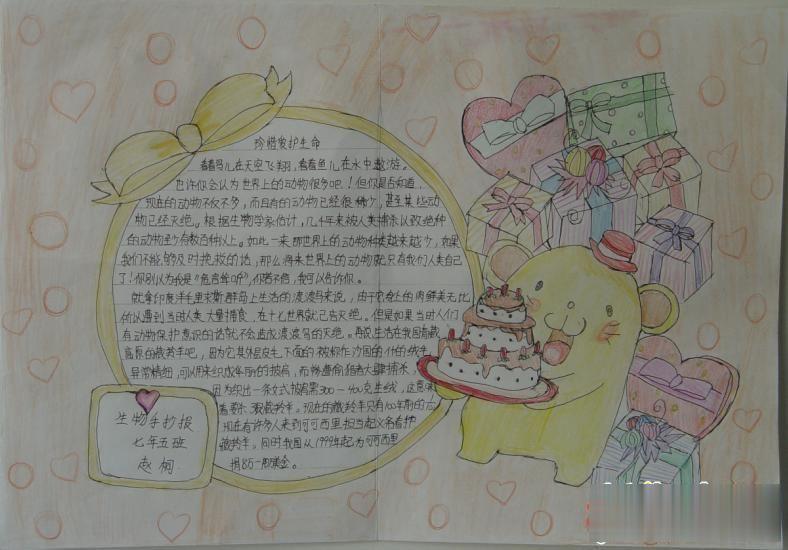 珍惜爱护生命
看看鸟儿在天空飞翔，看看鱼儿在水中遨游。
也许你会认为世界上的动物很多吧！但你是否知道，
现在的动物不仅不多，而且有的动物已经很稀少，甚至某些动
物已经灭绝。根据生物学家估计，几千年来被人类捕杀以致绝种
的动物至少有数百种以上。如此一来那世界上的动物种类越来越少，如果
我们不能够及时挽救的话，那么将来世界上的动物就只有我们人类自己
了！你别认为我是“危言耸听”，你若不信，我可以告诉你。
就拿印度洋毛里求斯群岛上生活的渡渡鸟来说，由于它身上的肉鲜美无比
所以遭到当时人类大量捕食，在十七世纪就已告灭绝。但是如果当时人们
有动物保护意识的话就不会造成渡渡鸟的灭绝。再说生活在我国青藏
高原的藏羚羊吧，因为它其外层皮毛下面的被称作沙图什的绒毛
异常精细，可以用来织成华丽的披肩，而惨遭偷猎者大肆捕杀，
因为织出一条女式披肩需300－400克生绒，这意味
着要杀3只藏羚羊。现在的藏羚羊只有100年前的
现在有许多人来到可可西里担当起义务看护
藏羚羊。同时我国从1999年起为可可西里
捐85
生物手抄报
七年五班
赵